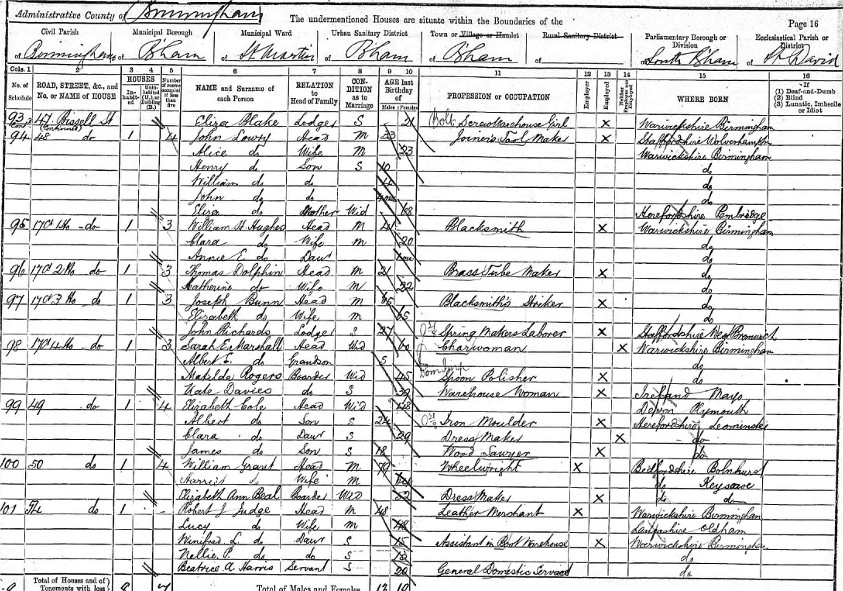 Administrative County of Birmingham
The undermentioned Houses are situate within the Boundaries of the
Page 16
Civil Parish Municipal Borough Municipal Ward Urban Sanitary District Town or Village or Hamlet Rural Sanitary District Parliamentary Borough or Division Ecclesiastical Parish or District
of Birmingham of B'ham of St Martin of B'ham of B'ham of of South B'ham of St David
Cols. 1 2 3 4 5 6 7 8 9 10 11 12 13 14 15 16
No. of Schedule ROAD, STREET, &c., and No. or NAME of HOUSE HOUSES Inhabited NAME and Surname of each Person RELATION to Head of Family CONDITION as to Marriage AGE last Birthday of Males Females PROFESSION or OCCUPATION Employer Employed Neither WHERE BORN If (1) Deaf-and-Dumb (2) Blind (3) Lunatic, Imbecile or Idiot
93 47 Russell St Eliza Blake Lodger S 21 Screw Warehouse Girl X Warwickshire Birmingham
94 48 do 1 4 John Lowry Head M 23 Joiner's Tool Maker X Staffordshire Wolverhampton
Alice do Wife M 23 Warwickshire Birmingham
Henry do Son S do
William do do do
John do do do
Eliza do Mother Wid 68 Herefordshire Pembridge
95 17 Ct 1 Ho do 1 3 William H Hughes Head M 21 Blacksmith X Warwickshire Birmingham
Clara do Wife M 20 do
Annie E. do Daur do
96 17 Ct 2 Ho do 1 3 Thomas Dolphin Head M 21 Brass Tube Maker X do
Katherine do Wife M 22 do
97 17 Ct 3 Ho do 1 3 Joseph Bunn Head M 65 Blacksmith's Striker X do
Elizabeth do Wife M 65 do
John Richards Lodger S 27 Spring Makers Laborer X Staffordshire West Bromwich
98 17 Ct 4 Ho do 1 3 Sarah E. Marshall Head Wid Charwoman X Warwickshire Birmingham
Albert E. do Grandson 5 do
Matilda Rogers Boarder Wid 45 Spoon Polisher X do
Kate Davies do S 39 Warehouse Woman X Ireland Mayo
99 49 do 1 4 Elizabeth Cole Head Wid 48 Devon Plymouth
Albert do Son S 24 Iron Moulder X Herefordshire Leominster
Clara do Daur S 20 Dress Maker X do
James do Son S 18 Wood Sawyer X do
100 50 do 1 4 William Grant Head M Wheelwright X Bedfordshire Bolnhurst
Harriet do Wife M do Keysoe
Elizabeth Ann Beal Boarder Wid 52 Dress Maker X do do
101 do 1 - Robert J Judge Head M 48 Leather Merchant X Warwickshire Birmingham
Lucy do Wife M 48 Lancashire Oldham
Winifred L. do Daur S 15 Assistant in Boot Warehouse X Warwickshire Birmingham
Nellie P. do do S 13 do
Beatrice A Harris Servant S 20 General Domestic Servant do
Total of Houses and of Tenements with less Total of Males and Females